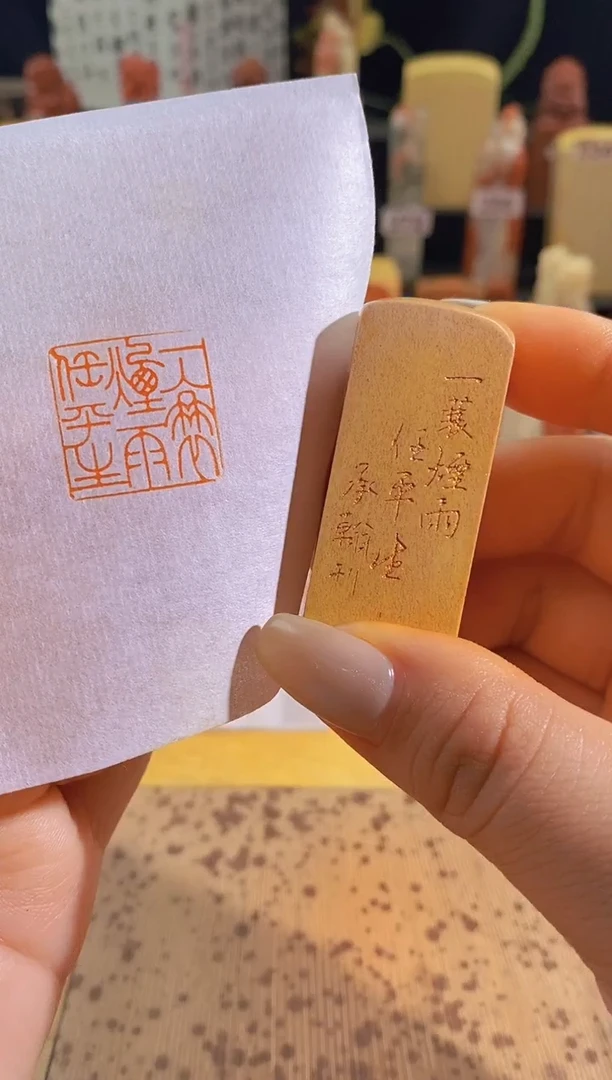 一蓑
煙雨
任平生
一蓑煙雨
任平生
承翰刊